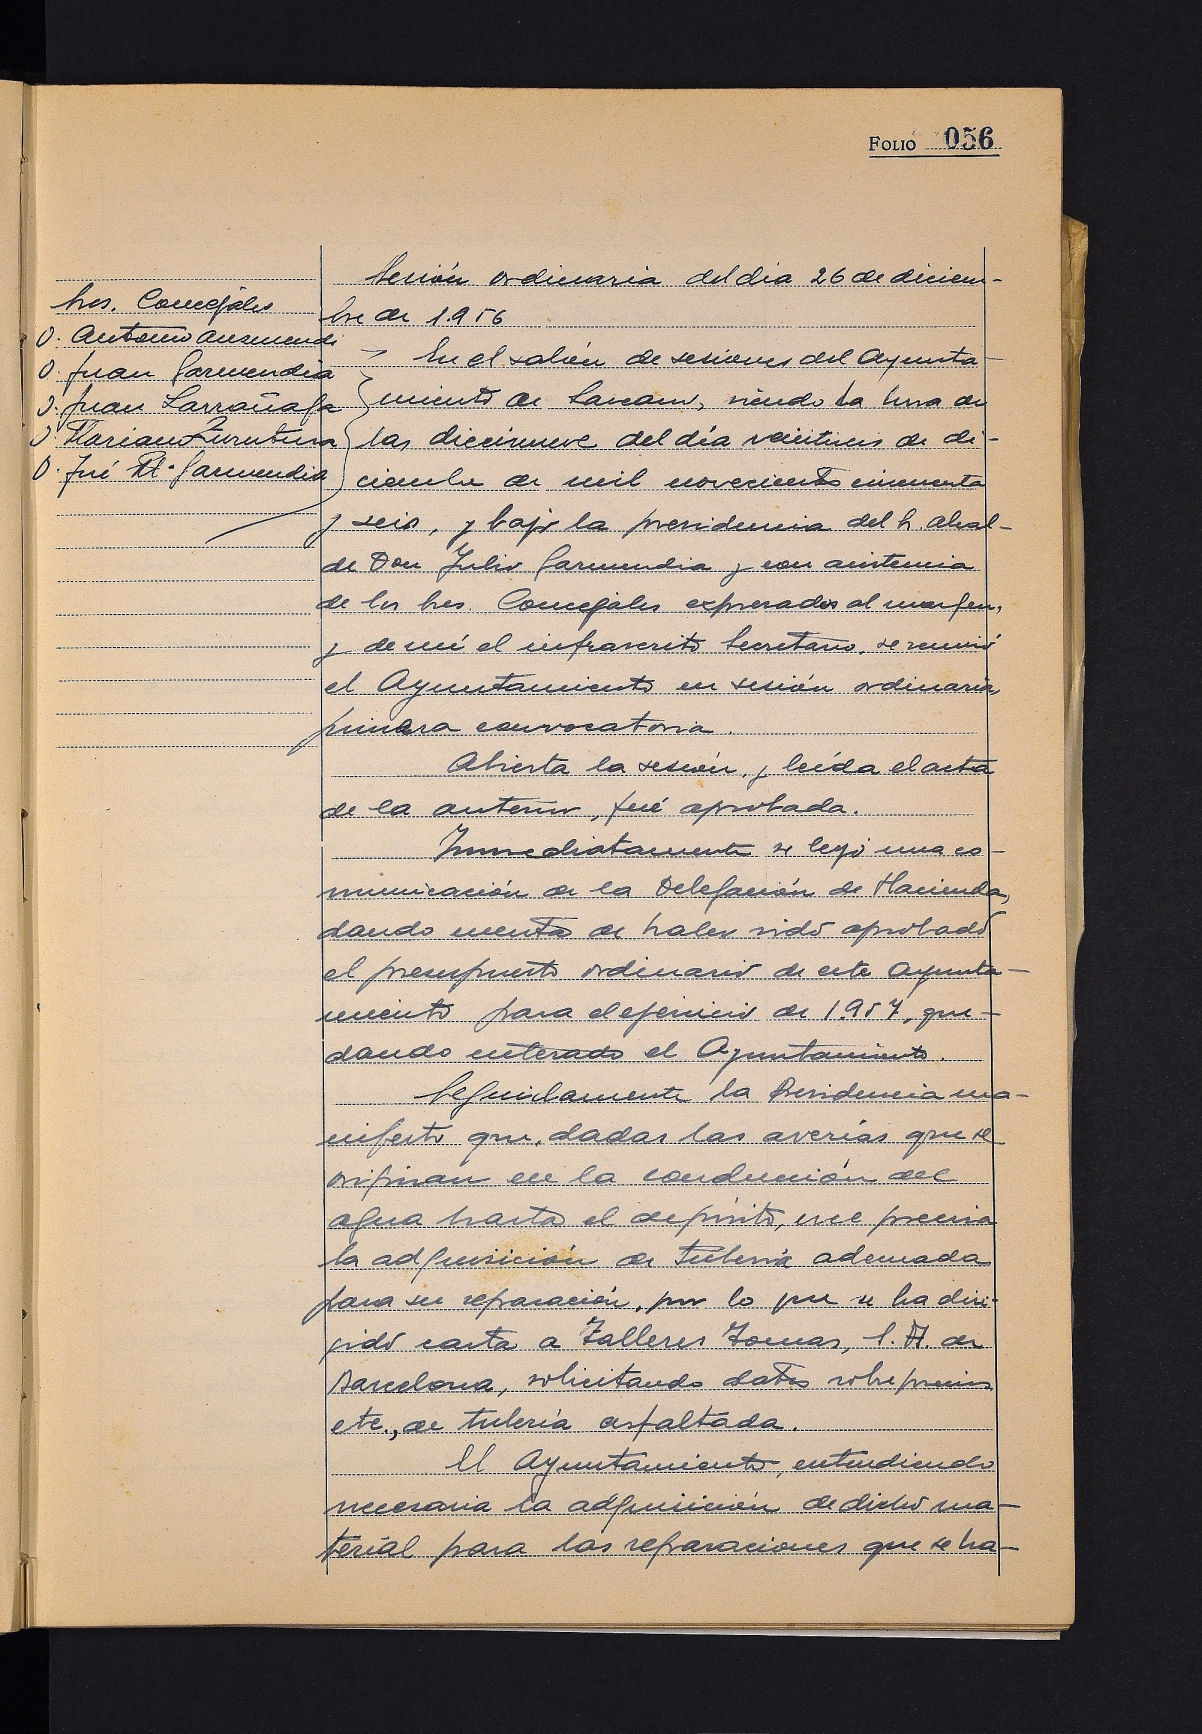 FOLIO 056
Sres. Concejales
D. Antonio Aurmendi
D. Juan Garmendia
D. Juan Larrañaga
D. Marian Zurutuza
D. José Mª Garmendia
Sesión ordinaria del dia 26 de diciem-
bre de 1.956
En el salón de sesiones del Ayunta-
miento de Lazcano, siendo la hora de
las diecinueve del día veintiseis de di-
ciembre de mil novecientos cincuenta
y seis, y bajo la presidencia del S. Alcal-
de Don Julio Garmendia y con asistencia
de los Sres. Concejales expresados al margen,
y de mí el infrascrito Secretario, se reunió
el Ayuntamiento en sesión ordinaria
primera convocatoria.
Abierta la sesión, y leída el acta
de la anterior, fué aprobada.
Inmediatamente se leyó una co-
municación de la Delegación de Hacienda,
dando cuenta de haber sido aprobado
el presupuesto ordinario de este Ayunta-
miento para el ejercicio de 1.957, que-
dando enterado el Ayuntamiento.
Seguidamente la Presidencia ma-
nifestó que, dadas las averías que se
originan en la conducción del
agua hasta el depósito, era precisa
la adquisición de tubería adecuada
para su reparación, por lo que se ha diri-
gido carta a Talleres Tomas, S.A. de
Barcelona, solicitando datos sobre precios
etc., de tubería asfaltada.
El Ayuntamiento, entendiendo
necesaria la adquisición de dicho ma-
terial para las reparaciones que se ha-